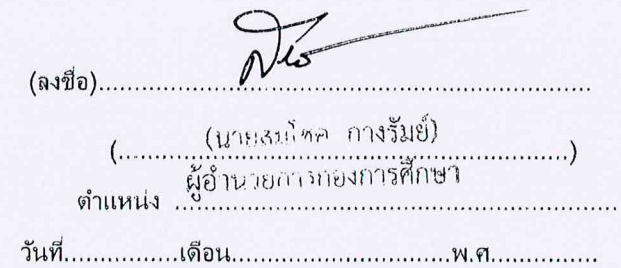 (ลงชื่อ)......................................................................
(นายสมโชค กางรัมย์)
(......................................................................)
ผู้อำนวยการกองการศึกษา
ตำแหน่ง ......................................................................
วันที่................เดือน................................พ.ศ...............